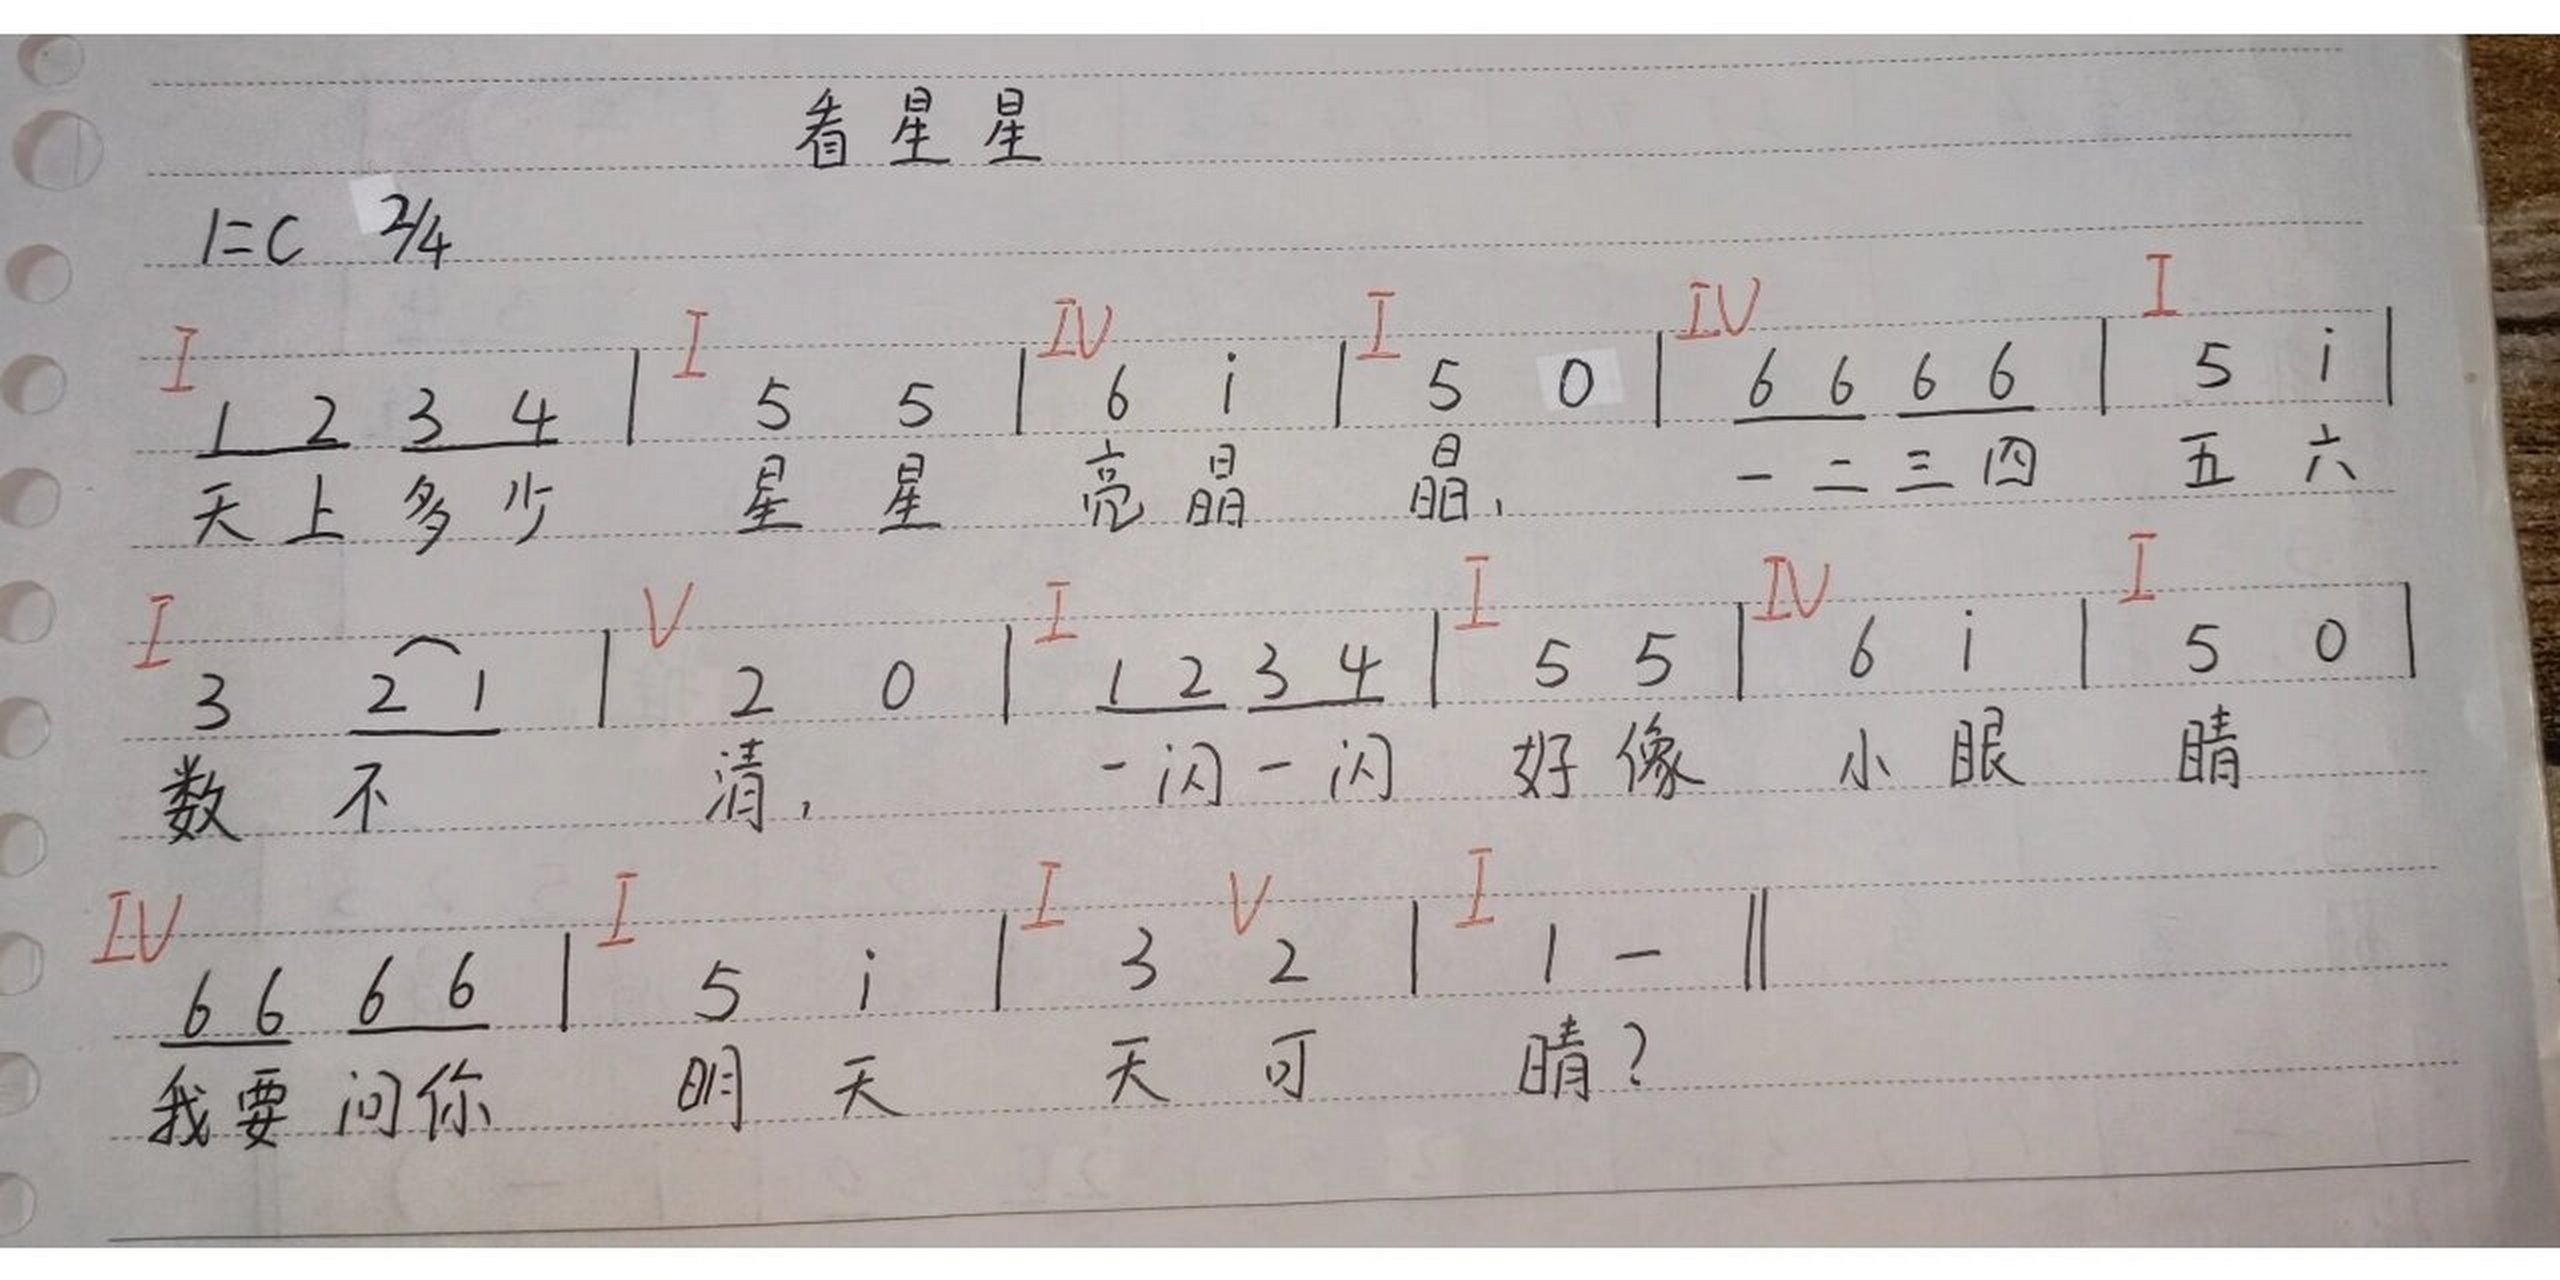 看星星
1=C 2/4
I I IV I IV I
1 2 3 4 | 5 5 | 6 i | 5 0 | 6 6 6 6 | 5 i |
天上多少 星星 亮晶 晶, 一二三四 五六
I V I I IV I
3 2 1 | 2 0 | 1 2 3 4 | 5 5 | 6 i | 5 0 |
数不 清, 一闪一闪 好像 小眼 睛
IV I I V I
6 6 6 6 | 5 i | 3 2 | 1 - ||
我要问你 明天 天可 晴?